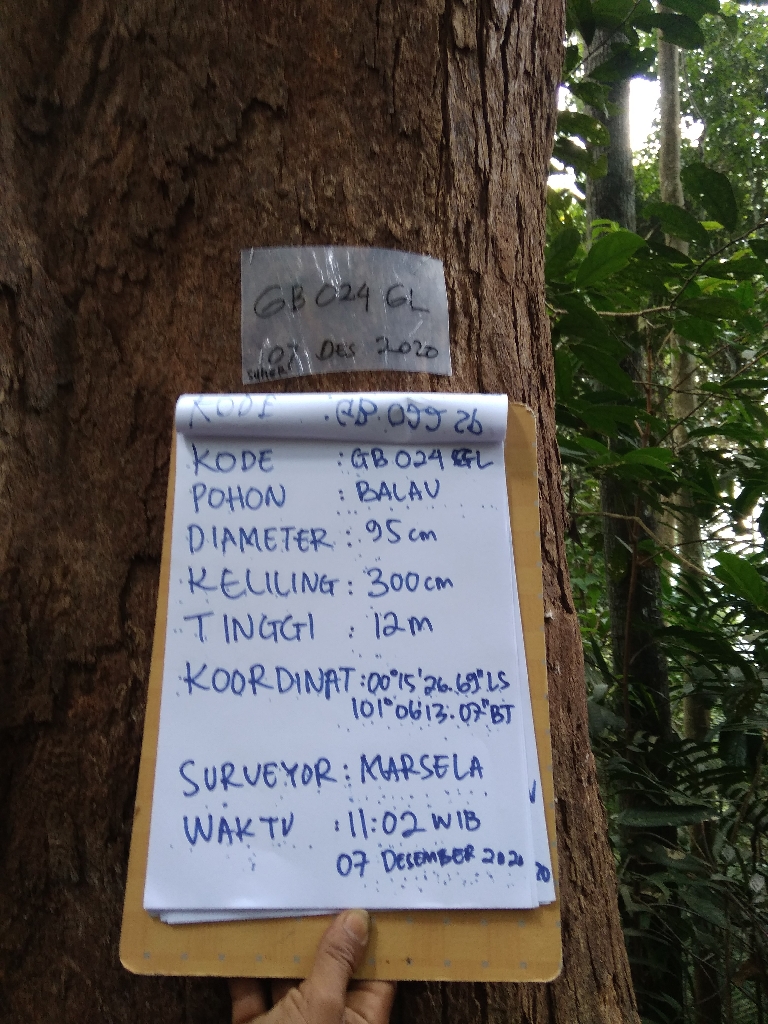 GB 024 GL
07 DES 2020
SUHERI
KODE :
KODE : GB 024 GL
POHON : BALAU
DIAMETER : 95 cm
KELILING : 300 cm
TINGGI : 12 m
KOORDINAT : 00°15'26.69" LS
101°06'13.07" BT
SURVEYOR : MARSELA
WAKTU : 11:02 WIB
07 DESEMBER 2020
20